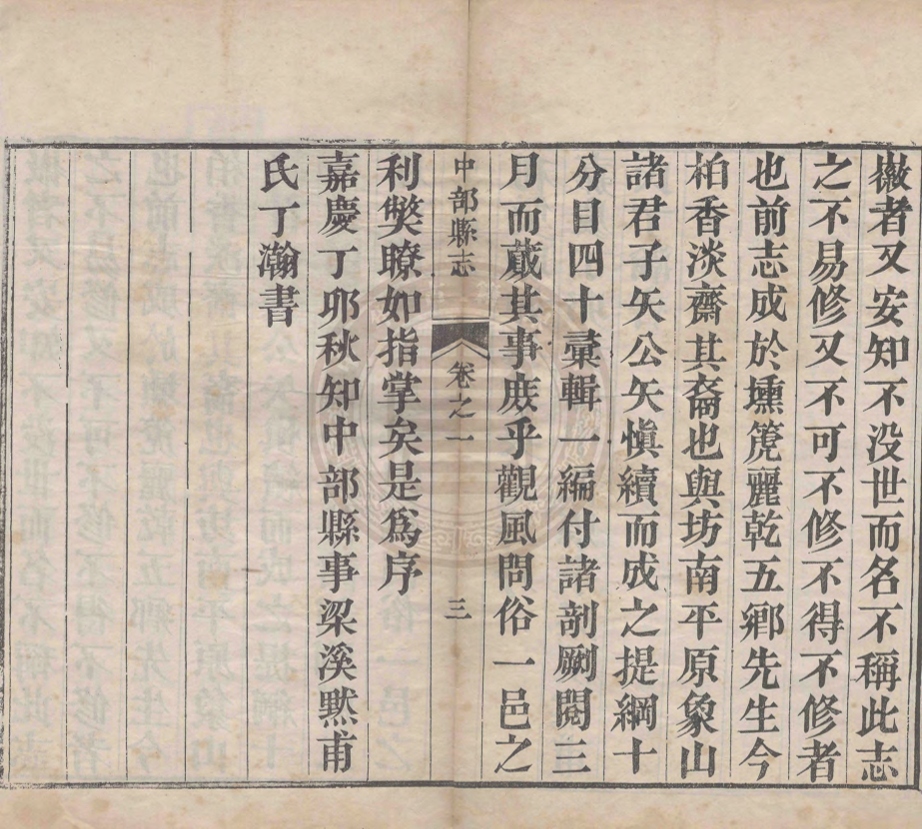 徽者又安知不没世而名不稱此志
之不易修又不可不修不得不修者
也前志成於壎箎麗乾五鄉先生今
柏香淡齋其裔也與坊南平原象山
諸君子矢公矢愼續而成之提綱十
分目四十彙輯一編付諸剞劂閱三
月而蕆其事庻乎觀風問俗一邑之
中部縣志
卷之一
三
利獘瞭如指掌矣是爲序
嘉慶丁卯秋知中部縣事梁溪黙甫
氏丁瀚書